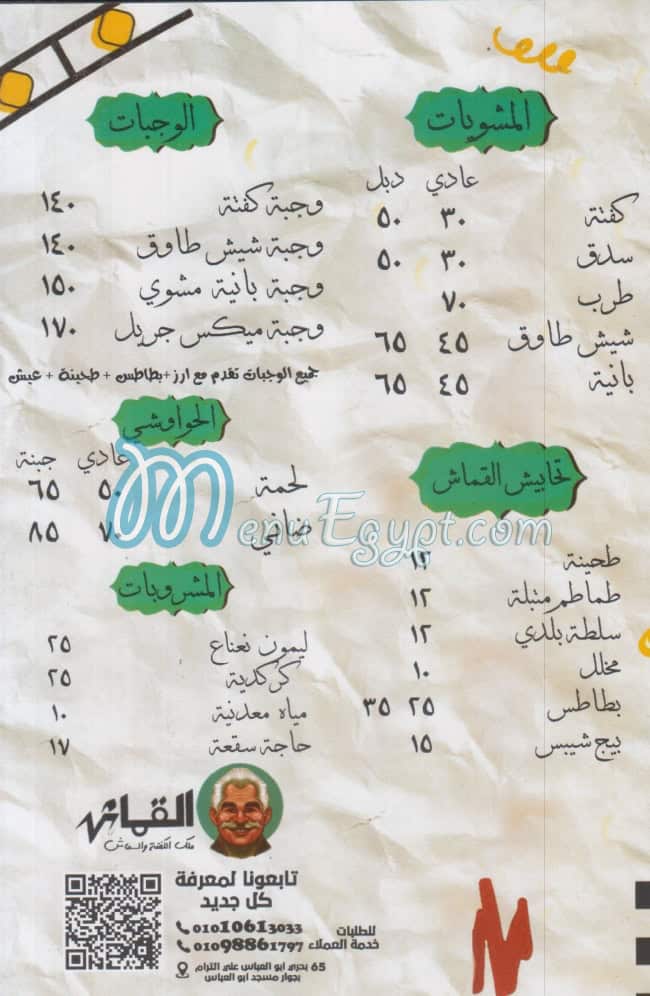 المشويات
عادي دبل
كفتة ٣٠ ٥٠
سدق ٣٠ ٥٠
طرب ٧٠
شيش طاوق ٤٥ ٦٥
بانية ٤٥ ٦٥
تحابيش القماش
طحينة ١٢
طماطم متبلة ١٢
سلطة بلدي ١٢
مخلل ١٠
بطاطس ٢٥ ٣٥
بيج شيبس ١٥
الوجبات
وجبة كفتة ١٤٠
وجبة شيش طاوق ١٤٠
وجبة بانية مشوي ١٥٠
وجبة ميكس جريل ١٧٠
جميع الوجبات تقدم مع ارز+بطاطس + طحينة + عيش
الحواوشي
عادي جبنة
لحمة ٥٠ ٦٥
ضاني ٧٠ ٨٥
المشروبات
ليمون نعناع ٢٥
كركدية ٢٥
مياه معدنية ١٠
حاجة سقعة ١٧
MenuEgypt.com
القماش
ملك الكفتة والسماش
تابعونا لمعرفة
كل جديد
للطلبات 01010613033
خدمة العملاء 01098861797
65 بحري ابو العباس علي الترام
بجوار مسجد ابو العباس